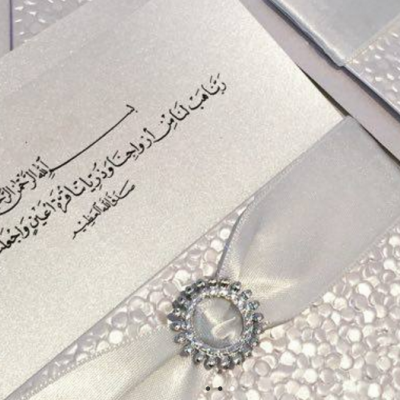 بسم الله الرحمن الرحيم
ربنا هب لنا من أزواجنا وذرياتنا قرة أعين واجعلنا
صدق الله العظيم